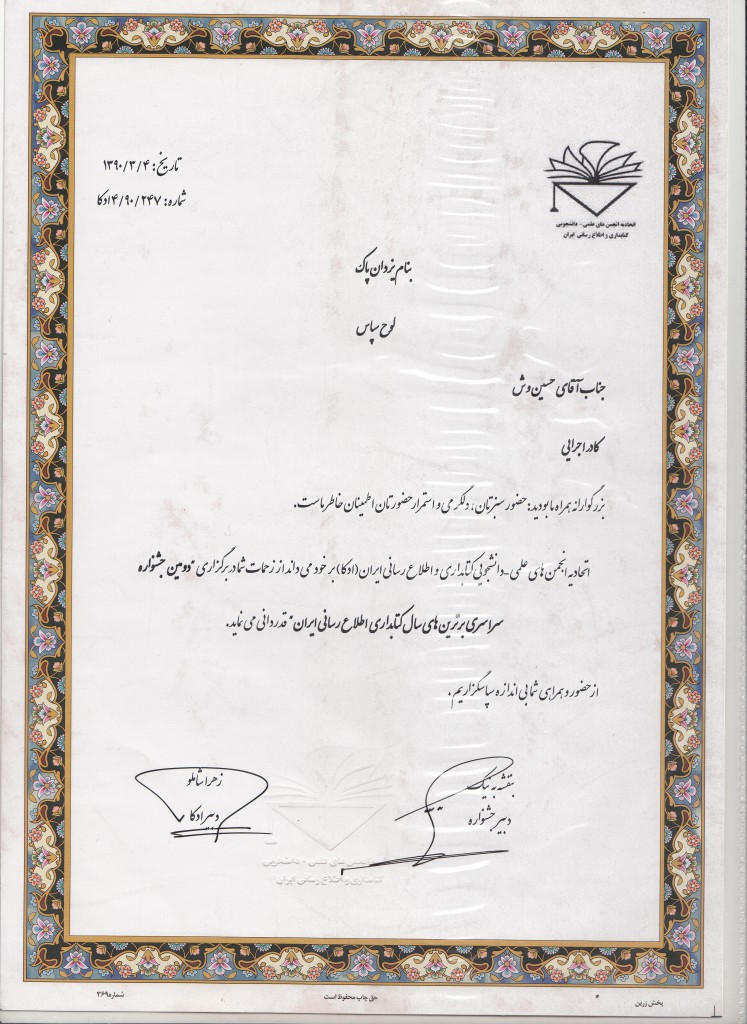 تاریخ: ۱۳۹۰/۳/۴
شماره: ۴/۹۰/۲۴۷/ادکا
اتحادیه انجمن های علمی - دانشجویی
کتابداری و اطلاع رسانی ایران
بنام یزدان پاک
لوح سپاس
جناب آقای حسین وش
کادر اجرایی
بزرگوارانه همراه ما بودید: حضور سبزتان، دلگرمی و استمرار حضورتان اطمینان خاطر ماست.
اتحادیه انجمن های علمی-دانشجویی کتابداری و اطلاع رسانی ایران (ادکا) بر خود می داند از زحمات شما در برگزاری "دومین جشنواره
سراسری برترین های سال کتابداری اطلاع رسانی ایران" قدردانی می نماید.
از حضور و همراهی شما بی اندازه سپاسگزاریم.
بنفشه به نیک
دبیر جشنواره
زهرا شاملو
دبیر ادکا
کتابداری و اطلاع رسانی ایران
شماره ۳۶۹
حق چاپ محفوظ است
پخش زرین